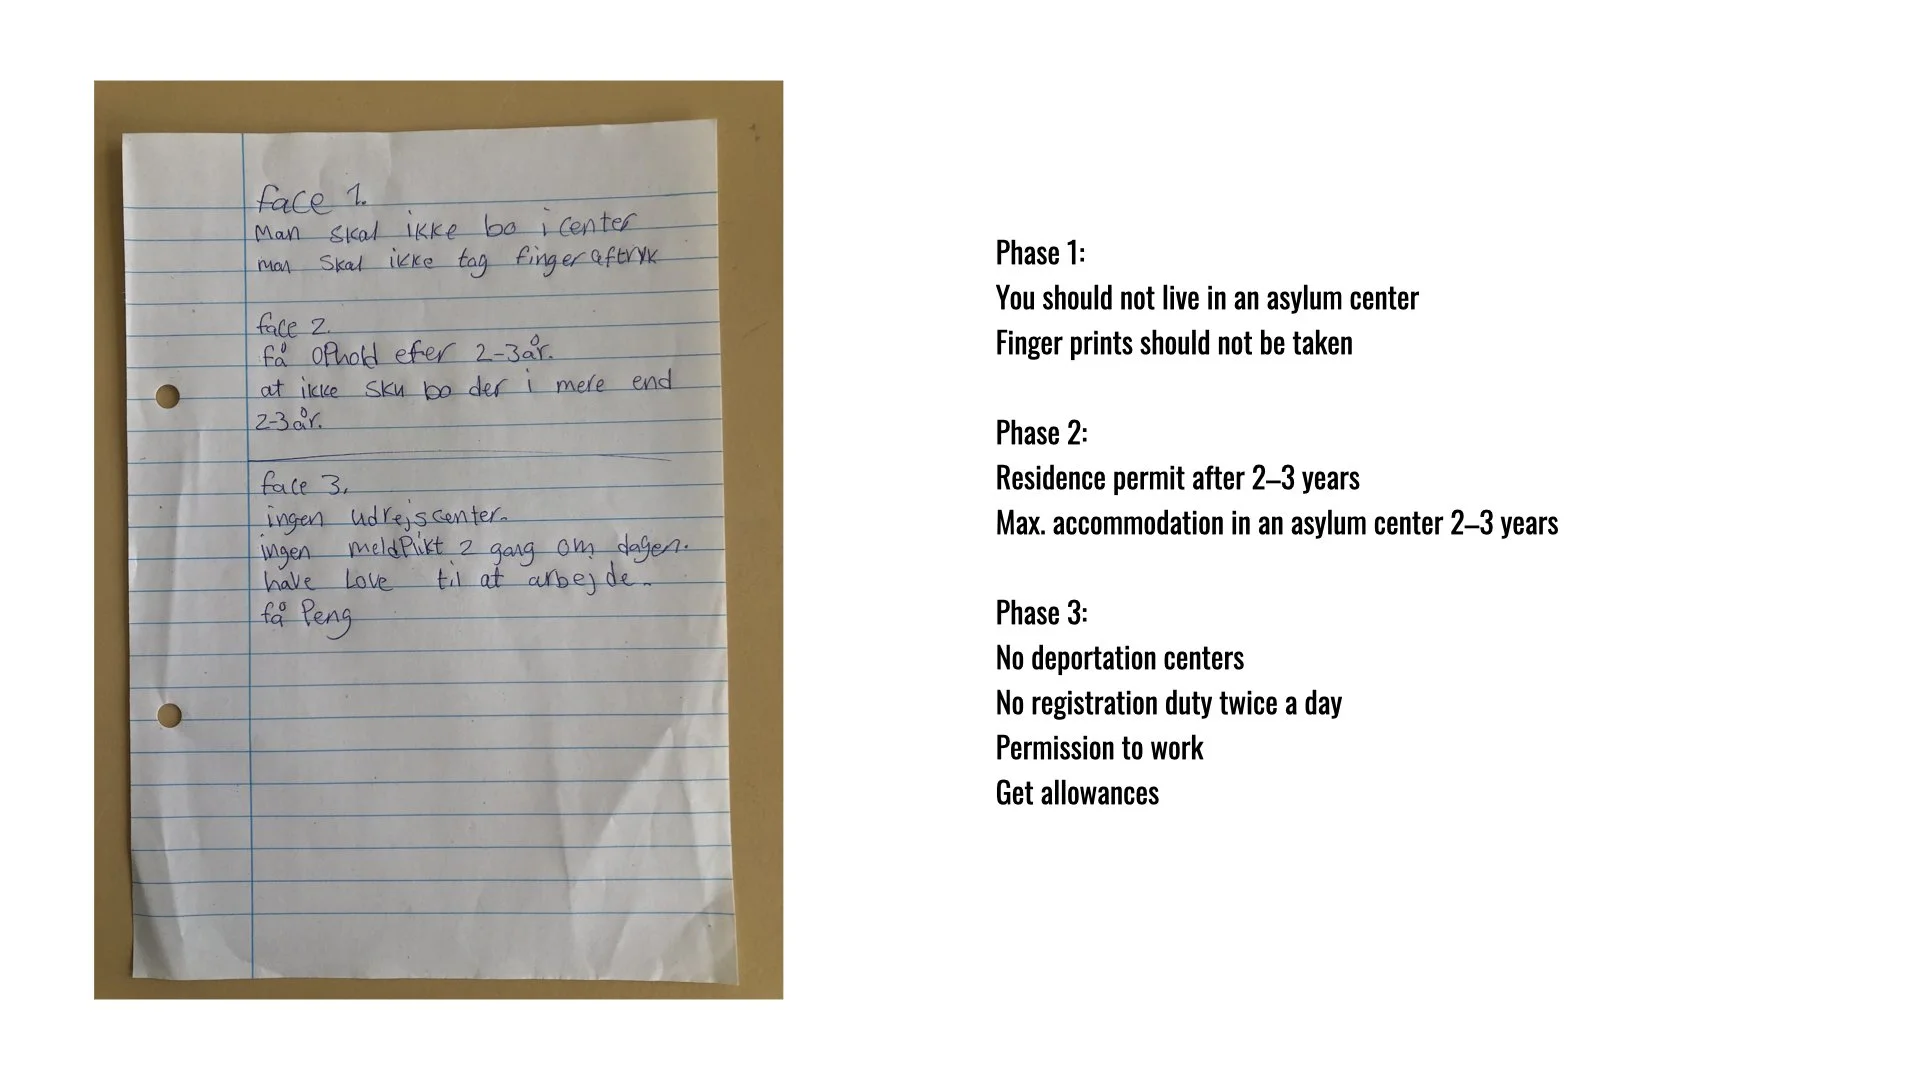 face 1.
Man skal ikke bo i center
man skal ikke tag finger aftryk
face 2.
få ophold efer 2-3 år.
at ikke sku bo der i mere end
2-3 år.
face 3.
ingen udrejscenter.
ingen meldPlikt 2 gang om dagen.
have Love til at arbejde.
få Peng
Phase 1:
You should not live in an asylum center
Finger prints should not be taken
Phase 2:
Residence permit after 2–3 years
Max. accommodation in an asylum center 2–3 years
Phase 3:
No deportation centers
No registration duty twice a day
Permission to work
Get allowances